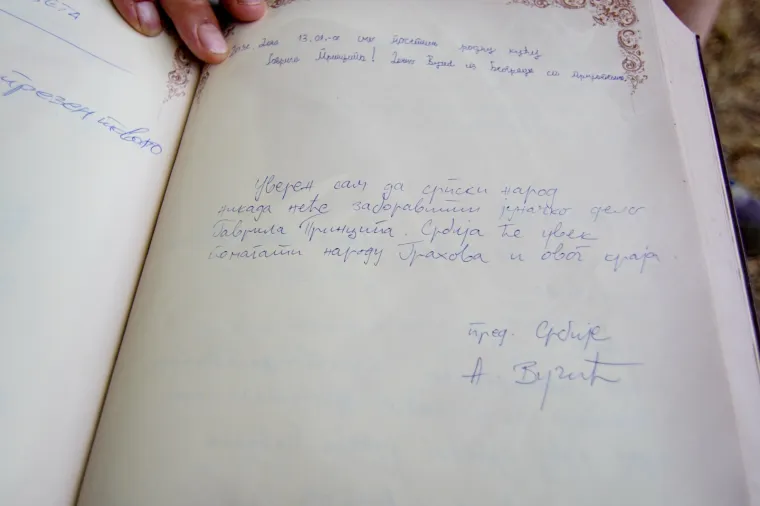 ЕСТА
презентовано
13. посетили родну кућу
Гаврила Принципа! из Београда са
Уверен сам да српски народ
никада неће заборавити јуначко дело
Гаврила Принципа. Србија ће увек
помагати народу Грахова и овог краја.
пред. Србије
А. Вучић